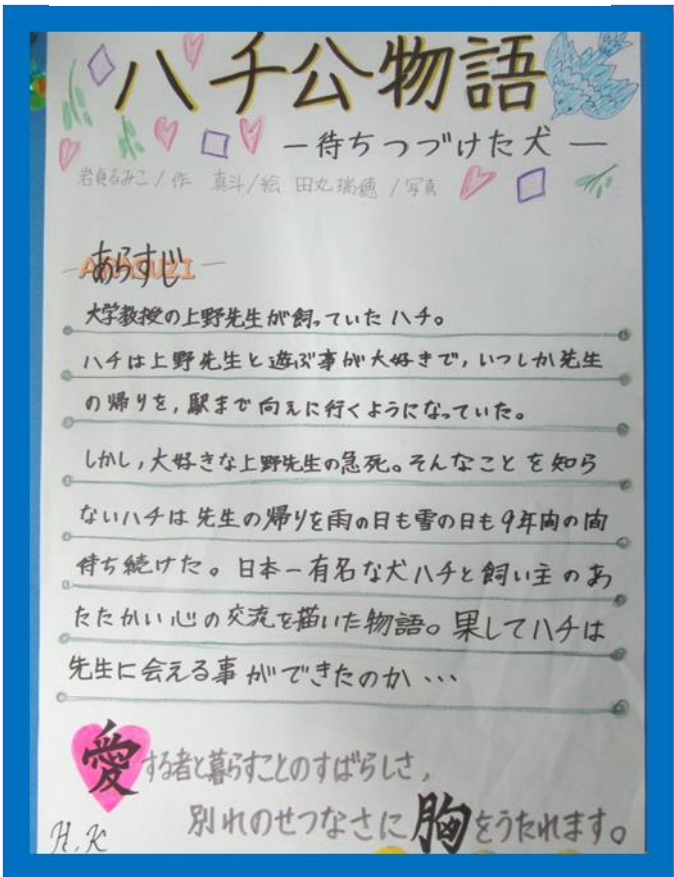 ハチ公物語
―待ちつづけた犬―
岩貞るみこ/作 真斗/絵 田丸瑞穂/写真
ARASUZI
―あらすじ―
大学教授の上野先生が飼っていたハチ。
ハチは上野先生と遊ぶ事が大好きで,いつしか先生
の帰りを,駅まで向えに行くようになっていた。
しかし,大好きな上野先生の急死。そんなことを知ら
ないハチは先生の帰りを雨の日も雪の日も9年間の間
待ち続けた。日本一有名な犬ハチと飼い主のあ
たたかい心の交流を描いた物語。果してハチは
先生に会える事ができたのか…
愛する者と暮らすことのすばらしさ,
別れのせつなさに胸をうたれます。
H.K